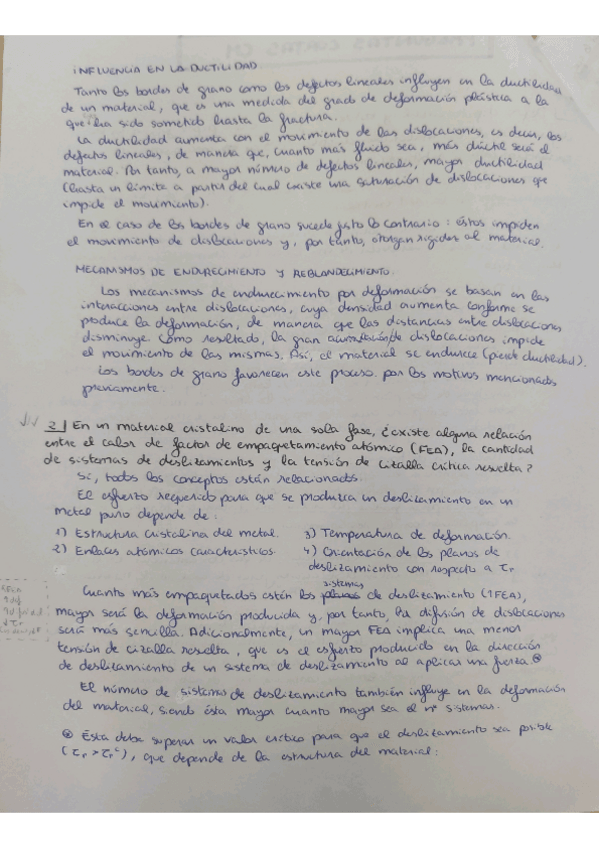 INFLUENCIA EN LA DUCTILIDAD.
Tanto los bordes de grano como los defectos lineales influyen en la ductilidad
de un material, que es una medida del grado de deformación plástica a la
que ha sido sometido hasta la fractura.
La ductilidad aumenta con el movimiento de las dislocaciones, es decir, los
defectos lineales, de manera que, cuanto más fluido sea, más dúctil será el
material. Por tanto, a mayor número de defectos lineales, mayor ductilidad
(hasta un límite a partir del cual existe una saturación de dislocaciones que
impide el movimiento).
En el caso de los bordes de grano sucede justo lo contrario: éstos impiden
el movimiento de dislocaciones y, por tanto, otorgan rigidez al material.
MECANISMOS DE ENDURECIMIENTO Y REBLANDECIMIENTO.
Los mecanismos de endurecimiento por deformación se basan en las
interacciones entre dislocaciones, cuya densidad aumenta conforme se
produce la deformación, de manera que las distancias entre dislocaciones
disminuye. Como resultado, la gran acumulación de dislocaciones impide
el movimiento de las mismas. Así, el material se endurece (pierde ductilidad).
Los bordes de grano favorecen este proceso por los motivos mencionados
previamente.
2 | En un material cristalino de una sola fase, ¿existe alguna relación
entre el calor de factor de empaquetamiento atómico (FEA), la cantidad
de sistemas de deslizamientos y la tensión de cizalla crítica resuelta?
Sí, todos los conceptos están relacionados.
El esfuerzo requerido para que se produzca un deslizamiento en un
metal puro depende de:
1) Estructura cristalina del metal. 3) Temperatura de deformación.
2) Enlaces atómicos característicos. 4) Orientación de los planos de
deslizamiento con respecto a τr
sistemas
Cuanto más empaquetados estén los planos de deslizamiento (↑FEA),
mayor será la deformación producida y, por tanto, la difusión de dislocaciones
será más sencilla. Adicionalmente, un mayor FEA implica una menor
tensión de cizalla resuelta, que es el esfuerzo producido en la dirección
de deslizamiento de un sistema de deslizamiento al aplicar una fuerza.⊛
El número de sistemas de deslizamiento también influye en la deformación
del material, siendo ésta mayor cuanto mayor sea el nº sistemas.
⊛ Ésta debe superar un valor crítico para que el deslizamiento sea posible
(τr > τrᶜ), que depende de la estructura del material: